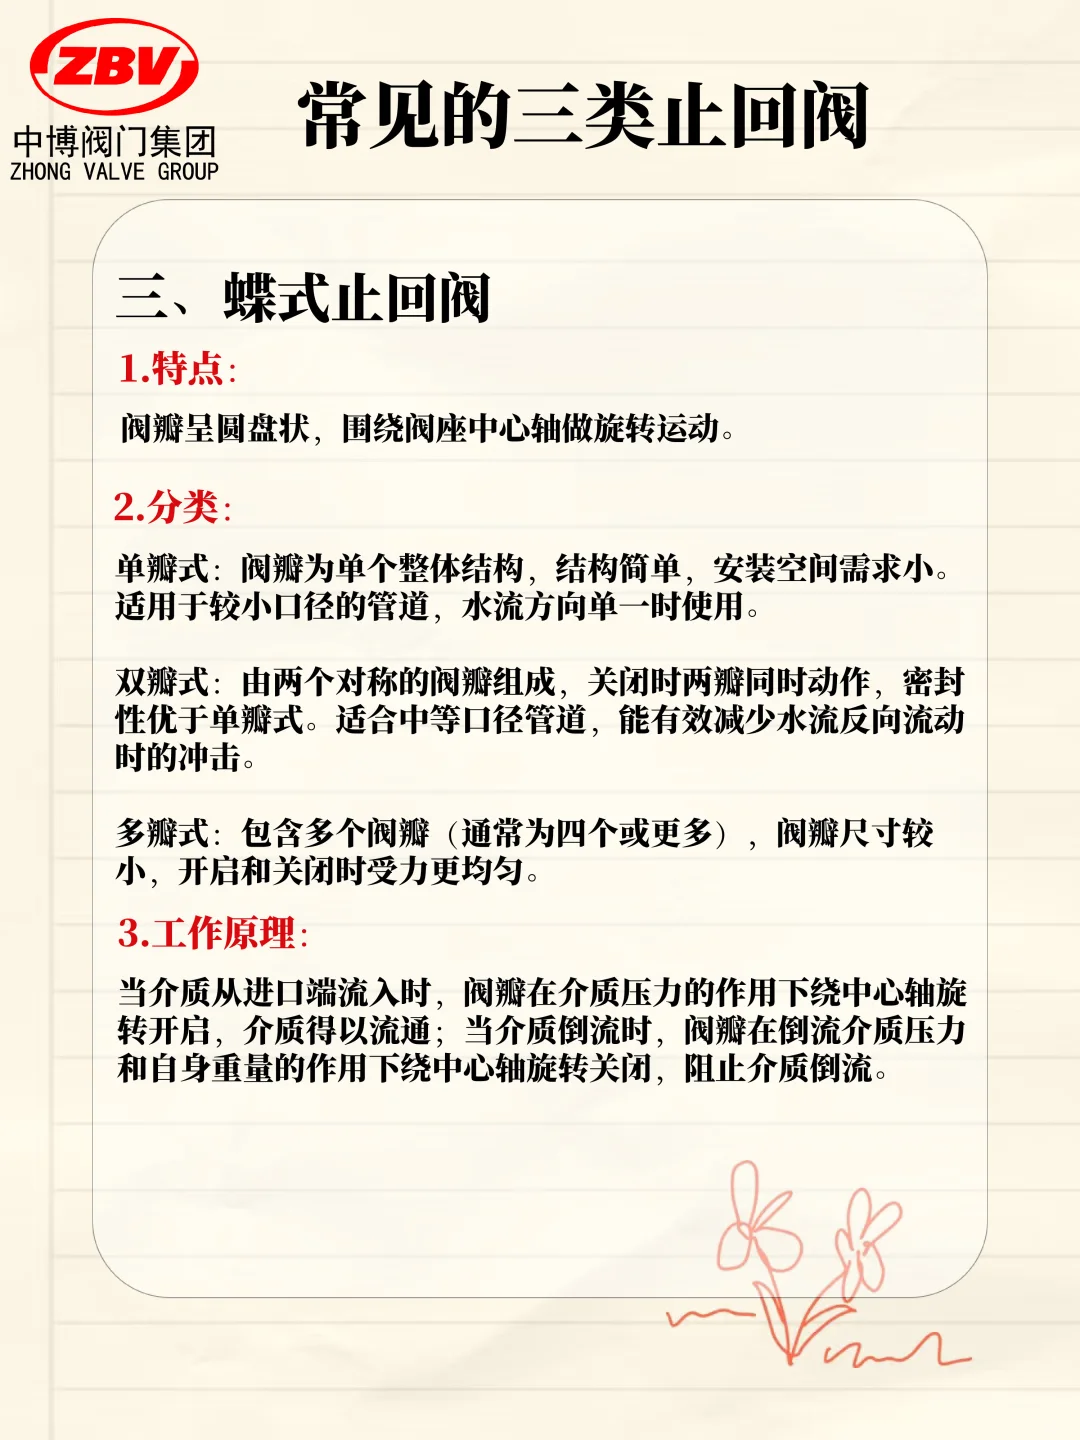 ZBV
中博阀门集团
ZHONG VALVE GROUP
常见的三类止回阀
三、蝶式止回阀
1.特点：
阀瓣呈圆盘状，围绕阀座中心轴做旋转运动。
2.分类：
单瓣式：阀瓣为单个整体结构，结构简单，安装空间需求小。
适用于较小口径的管道，水流方向单一时使用。
双瓣式：由两个对称的阀瓣组成，关闭时两瓣同时动作，密封
性优于单瓣式。适合中等口径管道，能有效减少水流反向流动
时的冲击。
多瓣式：包含多个阀瓣（通常为四个或更多），阀瓣尺寸较
小，开启和关闭时受力更均匀。
3.工作原理：
当介质从进口端流入时，阀瓣在介质压力的作用下绕中心轴旋
转开启，介质得以流通；当介质倒流时，阀瓣在倒流介质压力
和自身重量的作用下绕中心轴旋转关闭，阻止介质倒流。